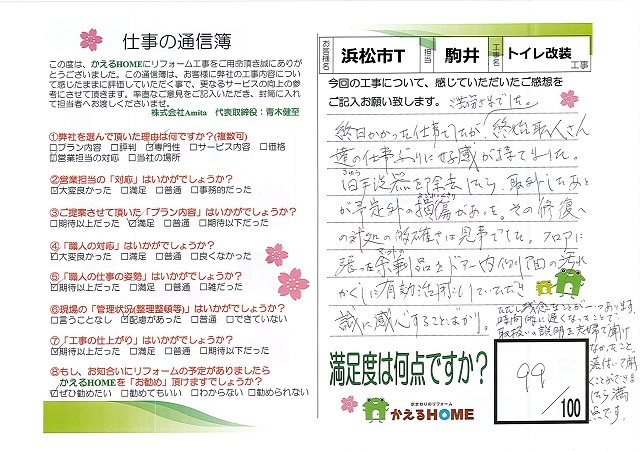 仕事の通信簿
この度は、かえるHOMEにリフォーム工事をご用命頂き誠にありが
とうございました。この通信簿は、お客様に弊社の工事内容につい
て感じたままに評価していただく事で、更なるサービスの向上の参
考にさせて頂きます。率直なご意見をご記入いただき、封筒に入れ
て担当者へお渡しくださいませ。
株式会社Amita 代表取締役：青木健至
①弊社を選んで頂いた理由は何ですか?(複数可)
□プラン内容 □評判 ☑専門性 □サービス内容 □価格
☑営業担当の対応 □当社の場所
②営業担当の「対応」はいかがでしょうか?
☑大変良かった □満足 □普通 □事務的だった
③ご提案させて頂いた「プラン内容」はいかがでしょうか?
□期待以上だった ☑満足 □普通 □期待以下だった
④「職人の対応」はいかがでしょうか?
☑大変良かった □満足 □普通 □良くなかった
⑤「職人の仕事の姿勢」はいかがでしょうか?
☑期待以上だった □満足 □普通 □雑だった
⑥現場の「管理状況(整理整頓等)」はいかがでしょうか?
□言うことなし ☑配慮があった □普通 □できていない
⑦「工事の仕上がり」はいかがでしょうか?
☑期待以上だった □満足 □普通 □期待以下だった
⑧もし、お知合いにリフォームの予定がありましたら
かえるHOMEを「お勧め」頂けますでしょうか?
☑ぜひ勧めたい □勧めてもいい □わからない □勧められない
お客様名 浜松市T 担当 駒井 工事名 トイレ改装 工事
今回の工事について、感じていただいたご感想を
ご記入お願い致します。
終日かかった仕事でしたが、終始職人さん
達の仕事ぶりに好感が持てました。
旧手洗器を除去したら、取外したあと
が予定外の損傷があった。その修復へ
の対処の的確さは見事でした。フロアに
張った余剰品をドアー内側面の汚れ
かくしに有効活用していただき
誠に感心することばかり。
ただし残念なことが一つあります。
時間的に遅くなったことで
取扱いの説明を夫婦で聞け
なかったこと。
落付いて聞
くことができま
したら満
点です。
満足度は何点ですか?
99
/100
水まわりのリフォーム
かえるHOME